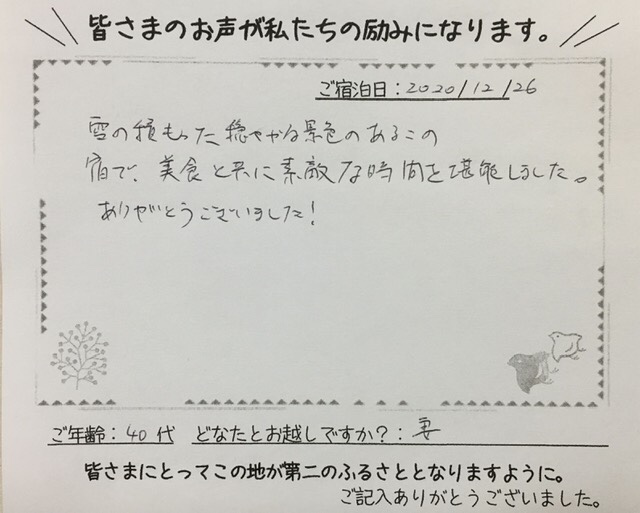 皆さまのお声が私たちの励みになります。
ご宿泊日：2020/12/26
雪の積もった穏やかな景色のあるこの
宿で、美食と共に素敵な時間を堪能しました。
ありがとうございました！
ご年齢：40代 どなたとお越しですか？：妻
皆さまにとってこの地が第二のふるさととなりますように。
ご記入ありがとうございました。